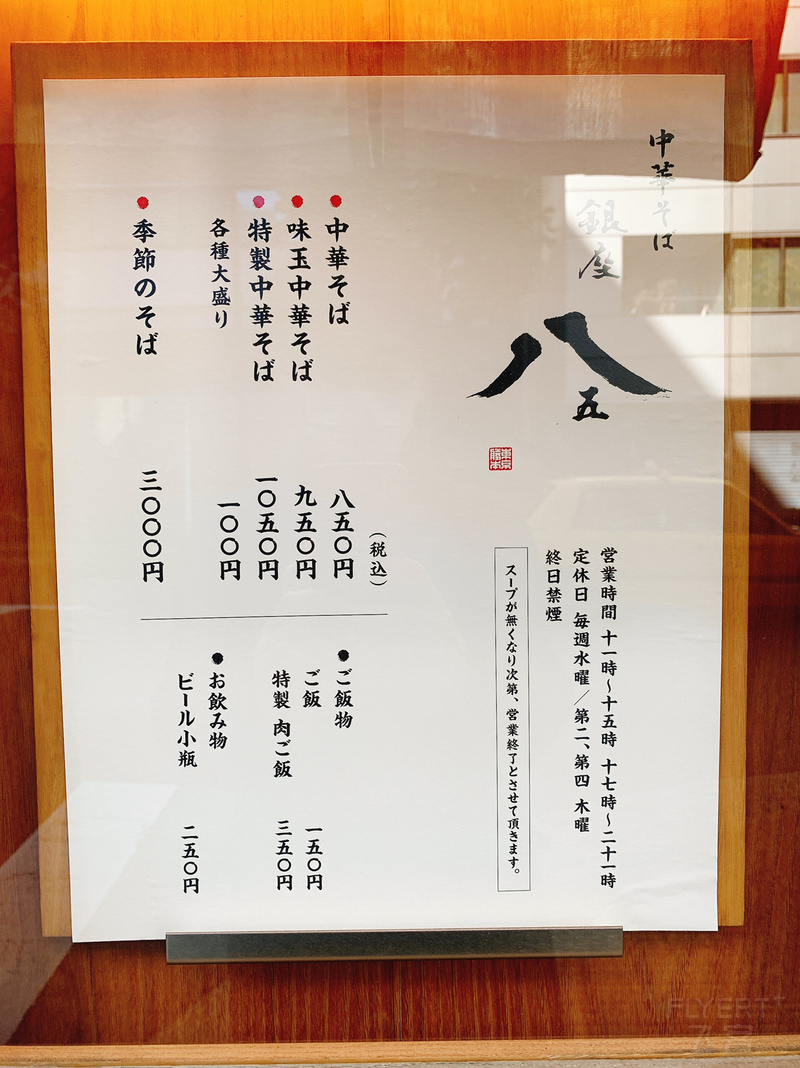 中華そば
銀座
八五
東京
勝本
営業時間 十一時～十五時 十七時～二十一時
定休日 毎週水曜／第二、第四 木曜
終日禁煙
スープが無くなり次第、営業終了とさせて頂きます。
(税込)
中華そば 八五〇円
味玉中華そば 九五〇円
特製中華そば 一〇五〇円
各種大盛り 一〇〇円
季節のそば 三〇〇〇円
ご飯物
ご飯 一五〇円
特製 肉ご飯 三五〇円
お飲み物
ビール小瓶 二五〇円
FLYERT